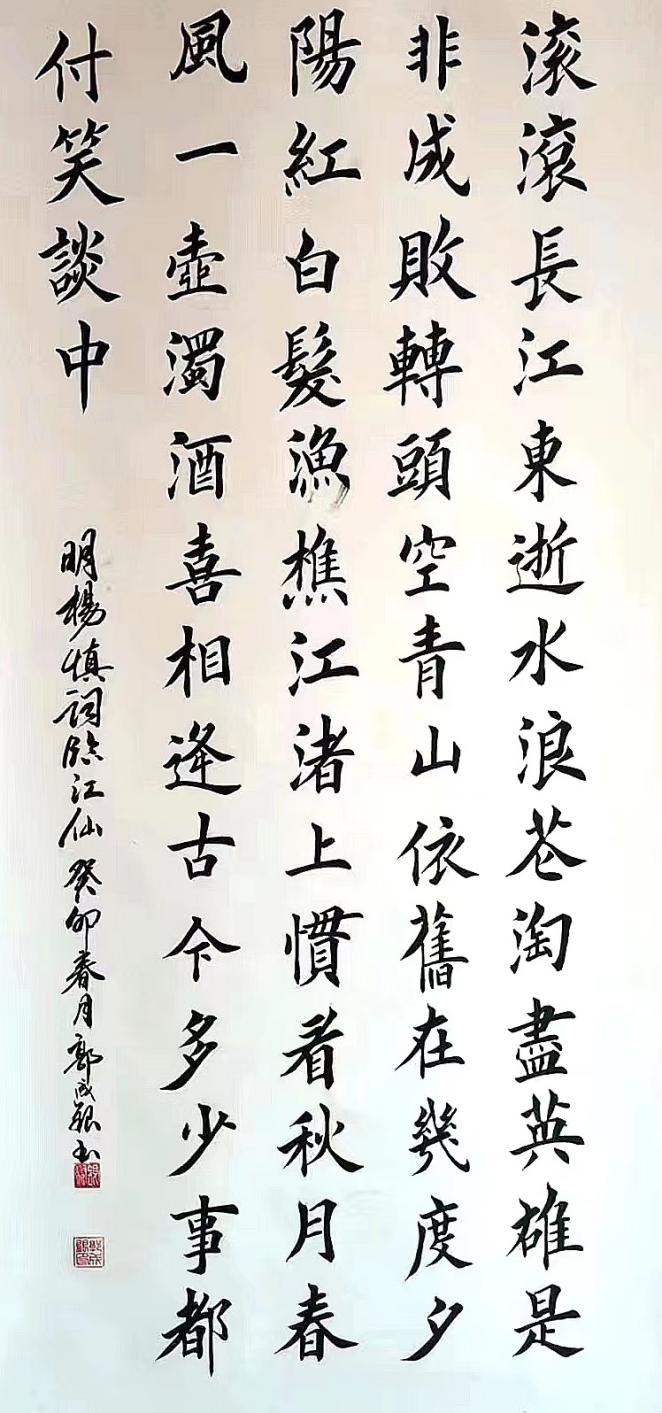 滾滾長江東逝水浪花淘盡英雄是
非成敗轉頭空青山依舊在幾度夕
陽紅白髮漁樵江渚上慣看秋月春
風一壺濁酒喜相逢古今多少事都
付笑談中
明楊慎詞臨江仙癸卯春月郭成